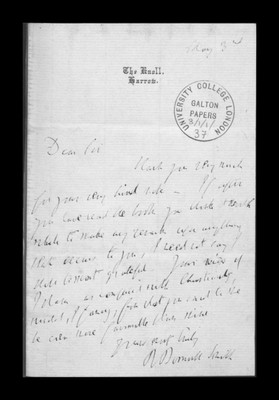 May 3rd
The Knoll,
Harrow.
UNIVERSITY COLLEGE LONDON
GALTON
PAPERS
3/1/1/
37
Dear Sir
Thank you very much
for your very kind note - If after
you have read the book you think it worth
while to make any remark upon anything
that occurs to you, I need not say I
shall be most grateful. Your view of
Islam as compared with Christianity
I fancy, from what you
be even more favourable than mine
Yours very truly
R Bosworth Smith